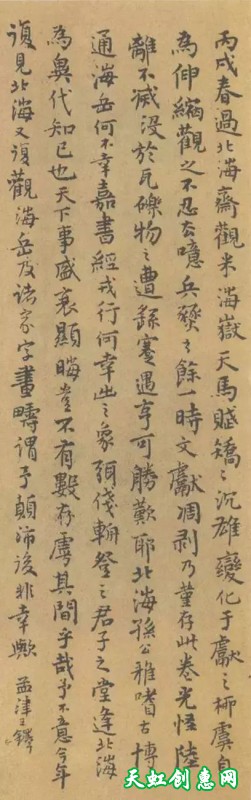 丙戌春過北海齋觀米海嶽天馬賦矯〻沉雄變化于獻之柳虞自
為伸縮觀之不忍去噫兵燹之餘一時文獻凋剥乃董存此卷光怪陸
離不滅没於瓦礫物之遭繇蹇遇亨可勝歎耶北海孫公雅嗜古博
通海岳何不幸嘉書經戎行何幸登之君子之堂逢北海
為異代知已也天下事盛衰顯晦豈不有數存焉其間乎哉予不意今年
復見北海又復觀海岳及諸家字畫疇謂予顛沛後非幸歟 孟津王鐸
天虹创意网